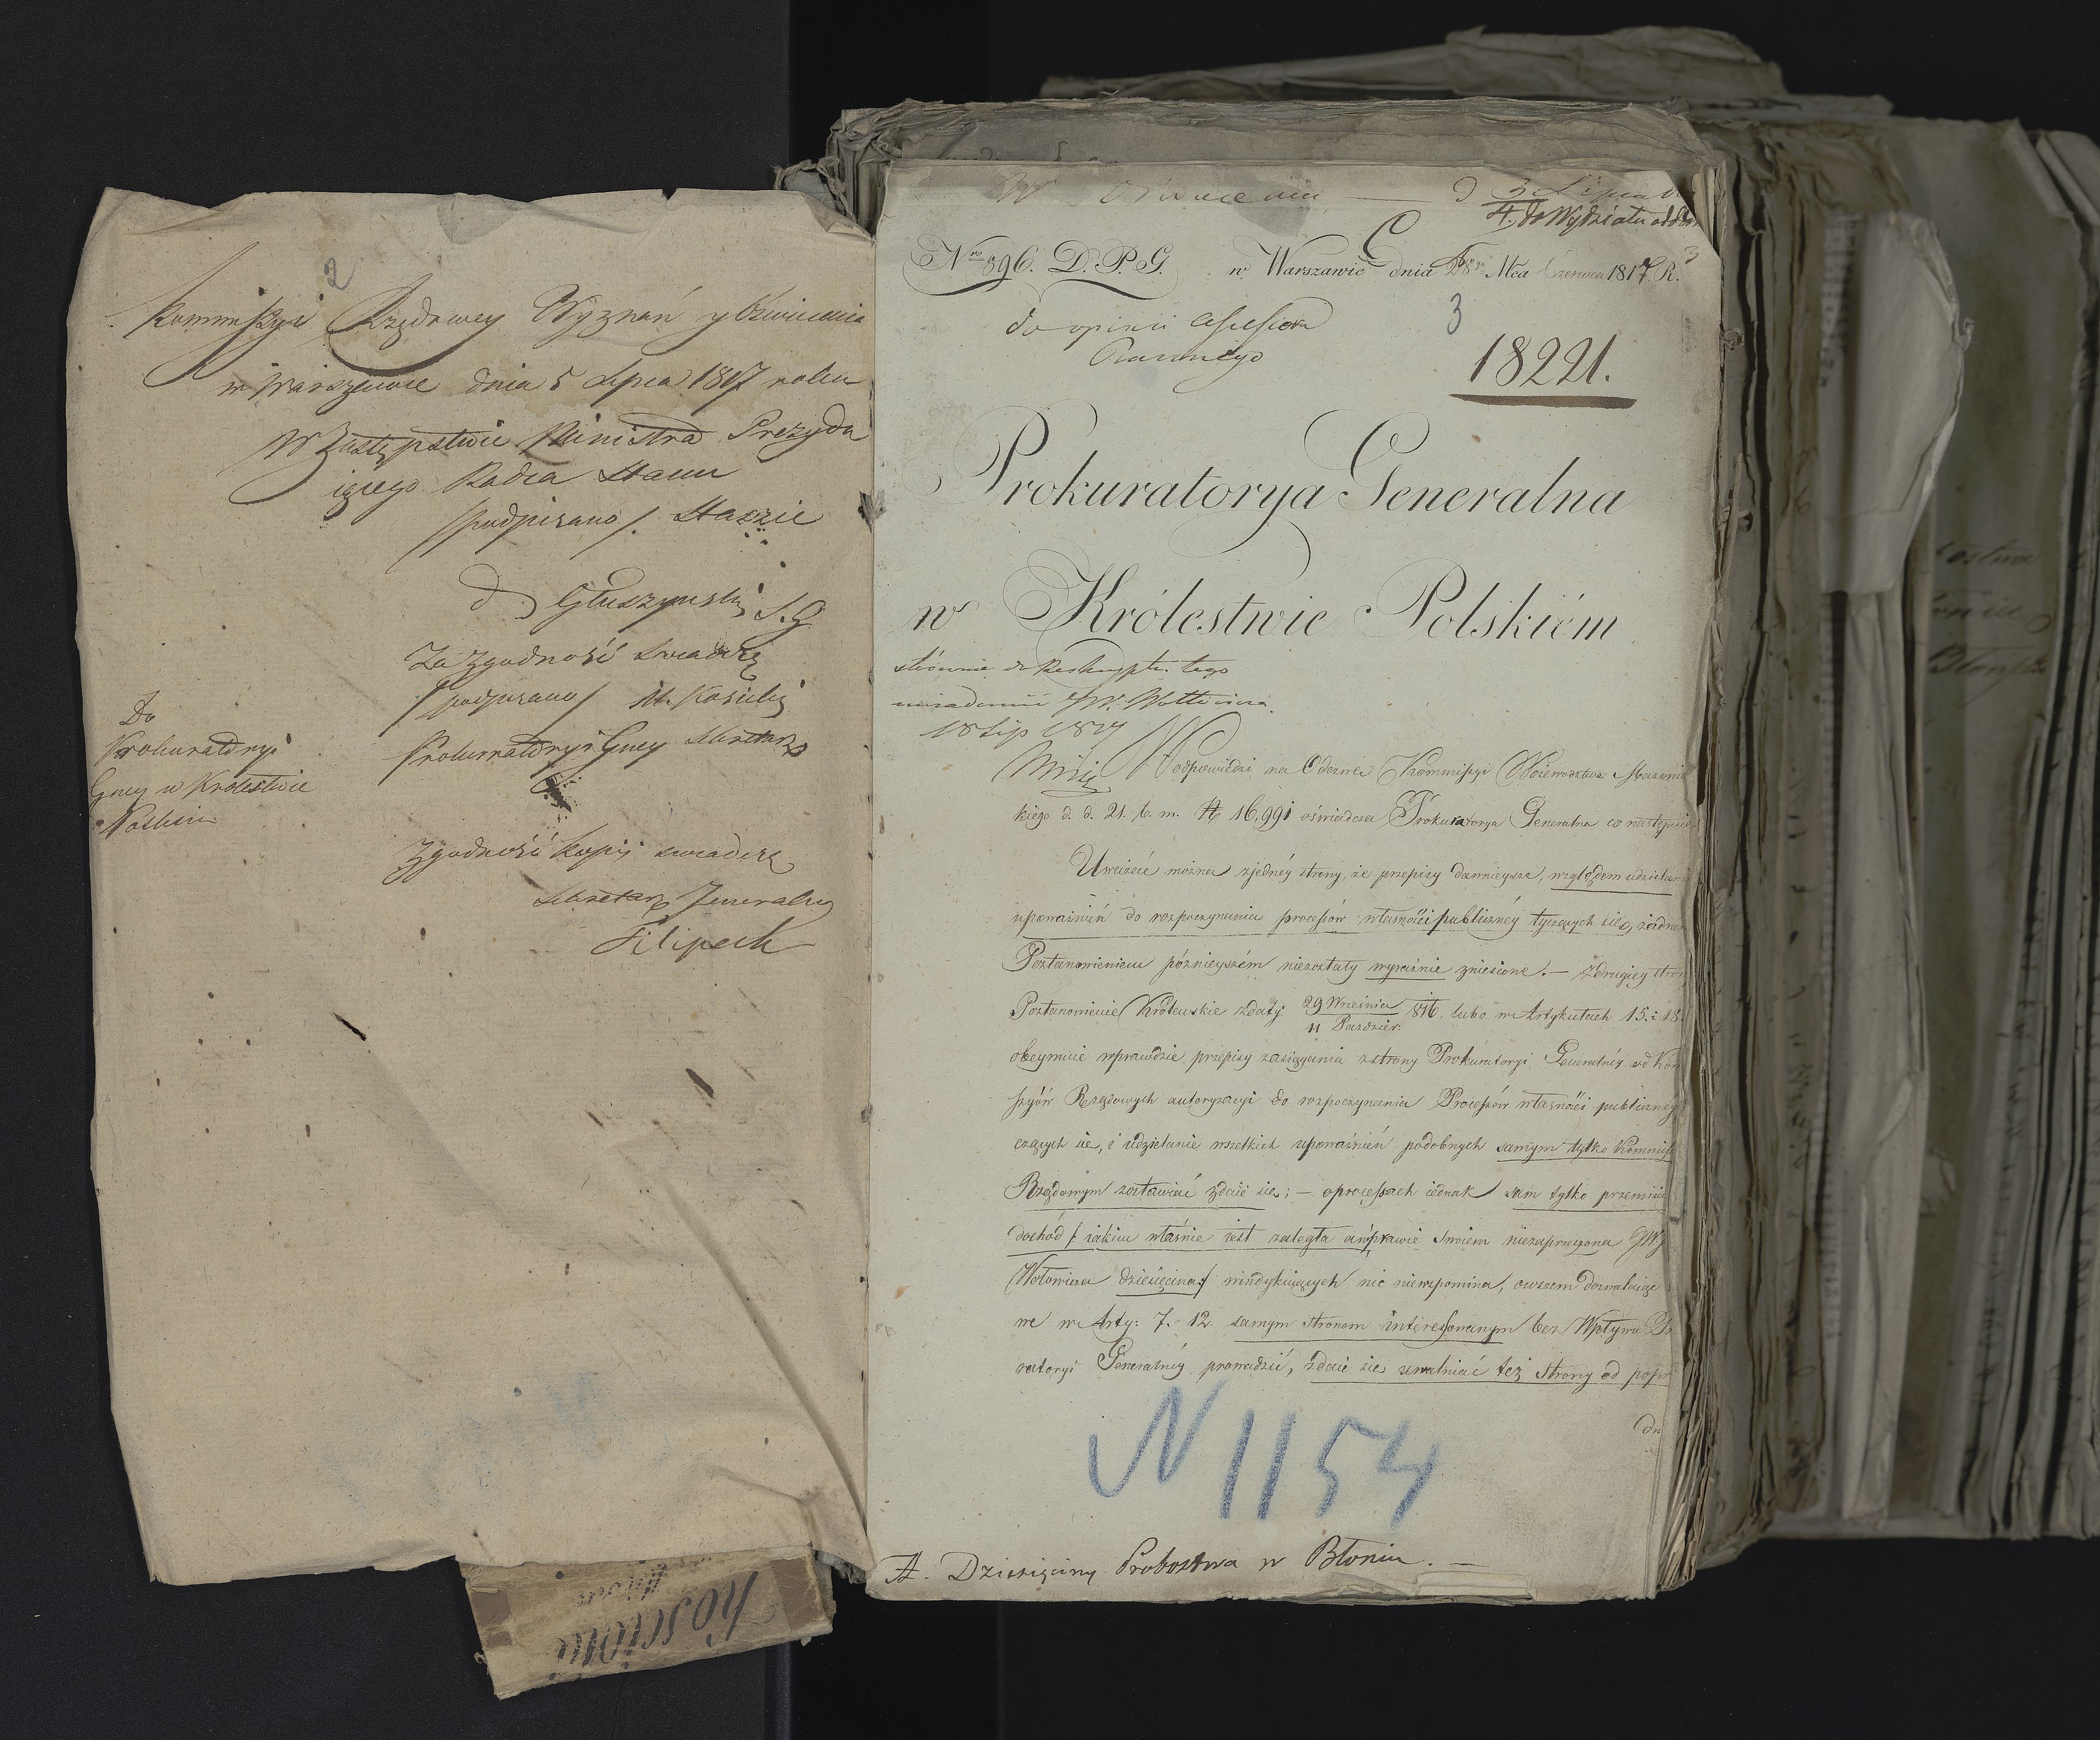 2
Kommissyi Rządowey Wyznań y Oświecenia
w Warszawie dnia 5 Lipca 1817 roku
W Zastępstwie Ministra Prezydu
iącego Radca Stanu
/podpisano/. Staszic
Głuszyński S. G.
Za zgodność świadczę
/podpisano/
Prokuratoryi Gney Sekretarz
Do
Prokuratoryi
Gney w Królestwie
Polskim
Zgodność kopij świadczę
Sekretarz Jeneralny
Filipecki
W
3 Lipca
4. do Wydziału
3
Nro 896. D. P. G. w Warszawie dnia 28 Mca Czerwca 1817 R.
do opinii Assessora
Prawnego
3
18221.
Prokuratorya Generalna
w Królestwie Polskiém
stósownie do Reskryptu tego
18 Lip 1817
W odpowiedzi na Odezwę Kommissyi Woiewodztwa Mazowie
kiego d. d. 21. b. m. N 16,991 oświadcza Prokuratorya Generalna co następuie
Uważać można zjednéy strony, że przepisy dawnieysze, względem udzielania
upoważnień do rozpoczynania processów własności publicznéy tyczących się, żadnem
Postanowieniem późnieyszém niezostały wyraźnie zniesione. — zdrugiey stron
Postanowienie Królewskie zdaty 29 Września / 11 Paździer. 816. lubo w Artykułach 15. i 18.
obeymuie wprawdzie przepisy zasięgania zstrony Prokuratoryi Generalnéy od Kom
szyów Rządowych autoryzacyi do rozpoczynania Processów własności publicznéy
czących się, i udzielanie wszelkich upoważnień podobnych samym tylko Kommiss
Rządowym zostawiać zdaie się; — oprocessach iednak sam tylko
dochód /: iakim właśnie iest zaległa a w prawie swoiem niezaprzeczona JW
Wołowicza dziesięcina :/ windykuiących nic niewspomina, owszem dozwalaiąc
we w Arty: 7. 12. samym stronom interessowanym bez Wpływu Pr
ratoryi Generalnéy prowadzić, zdaie się uwalniać też Strony od
N 1154
A. Dziesięciny Probostwa w Błoniu. —
Kościoła